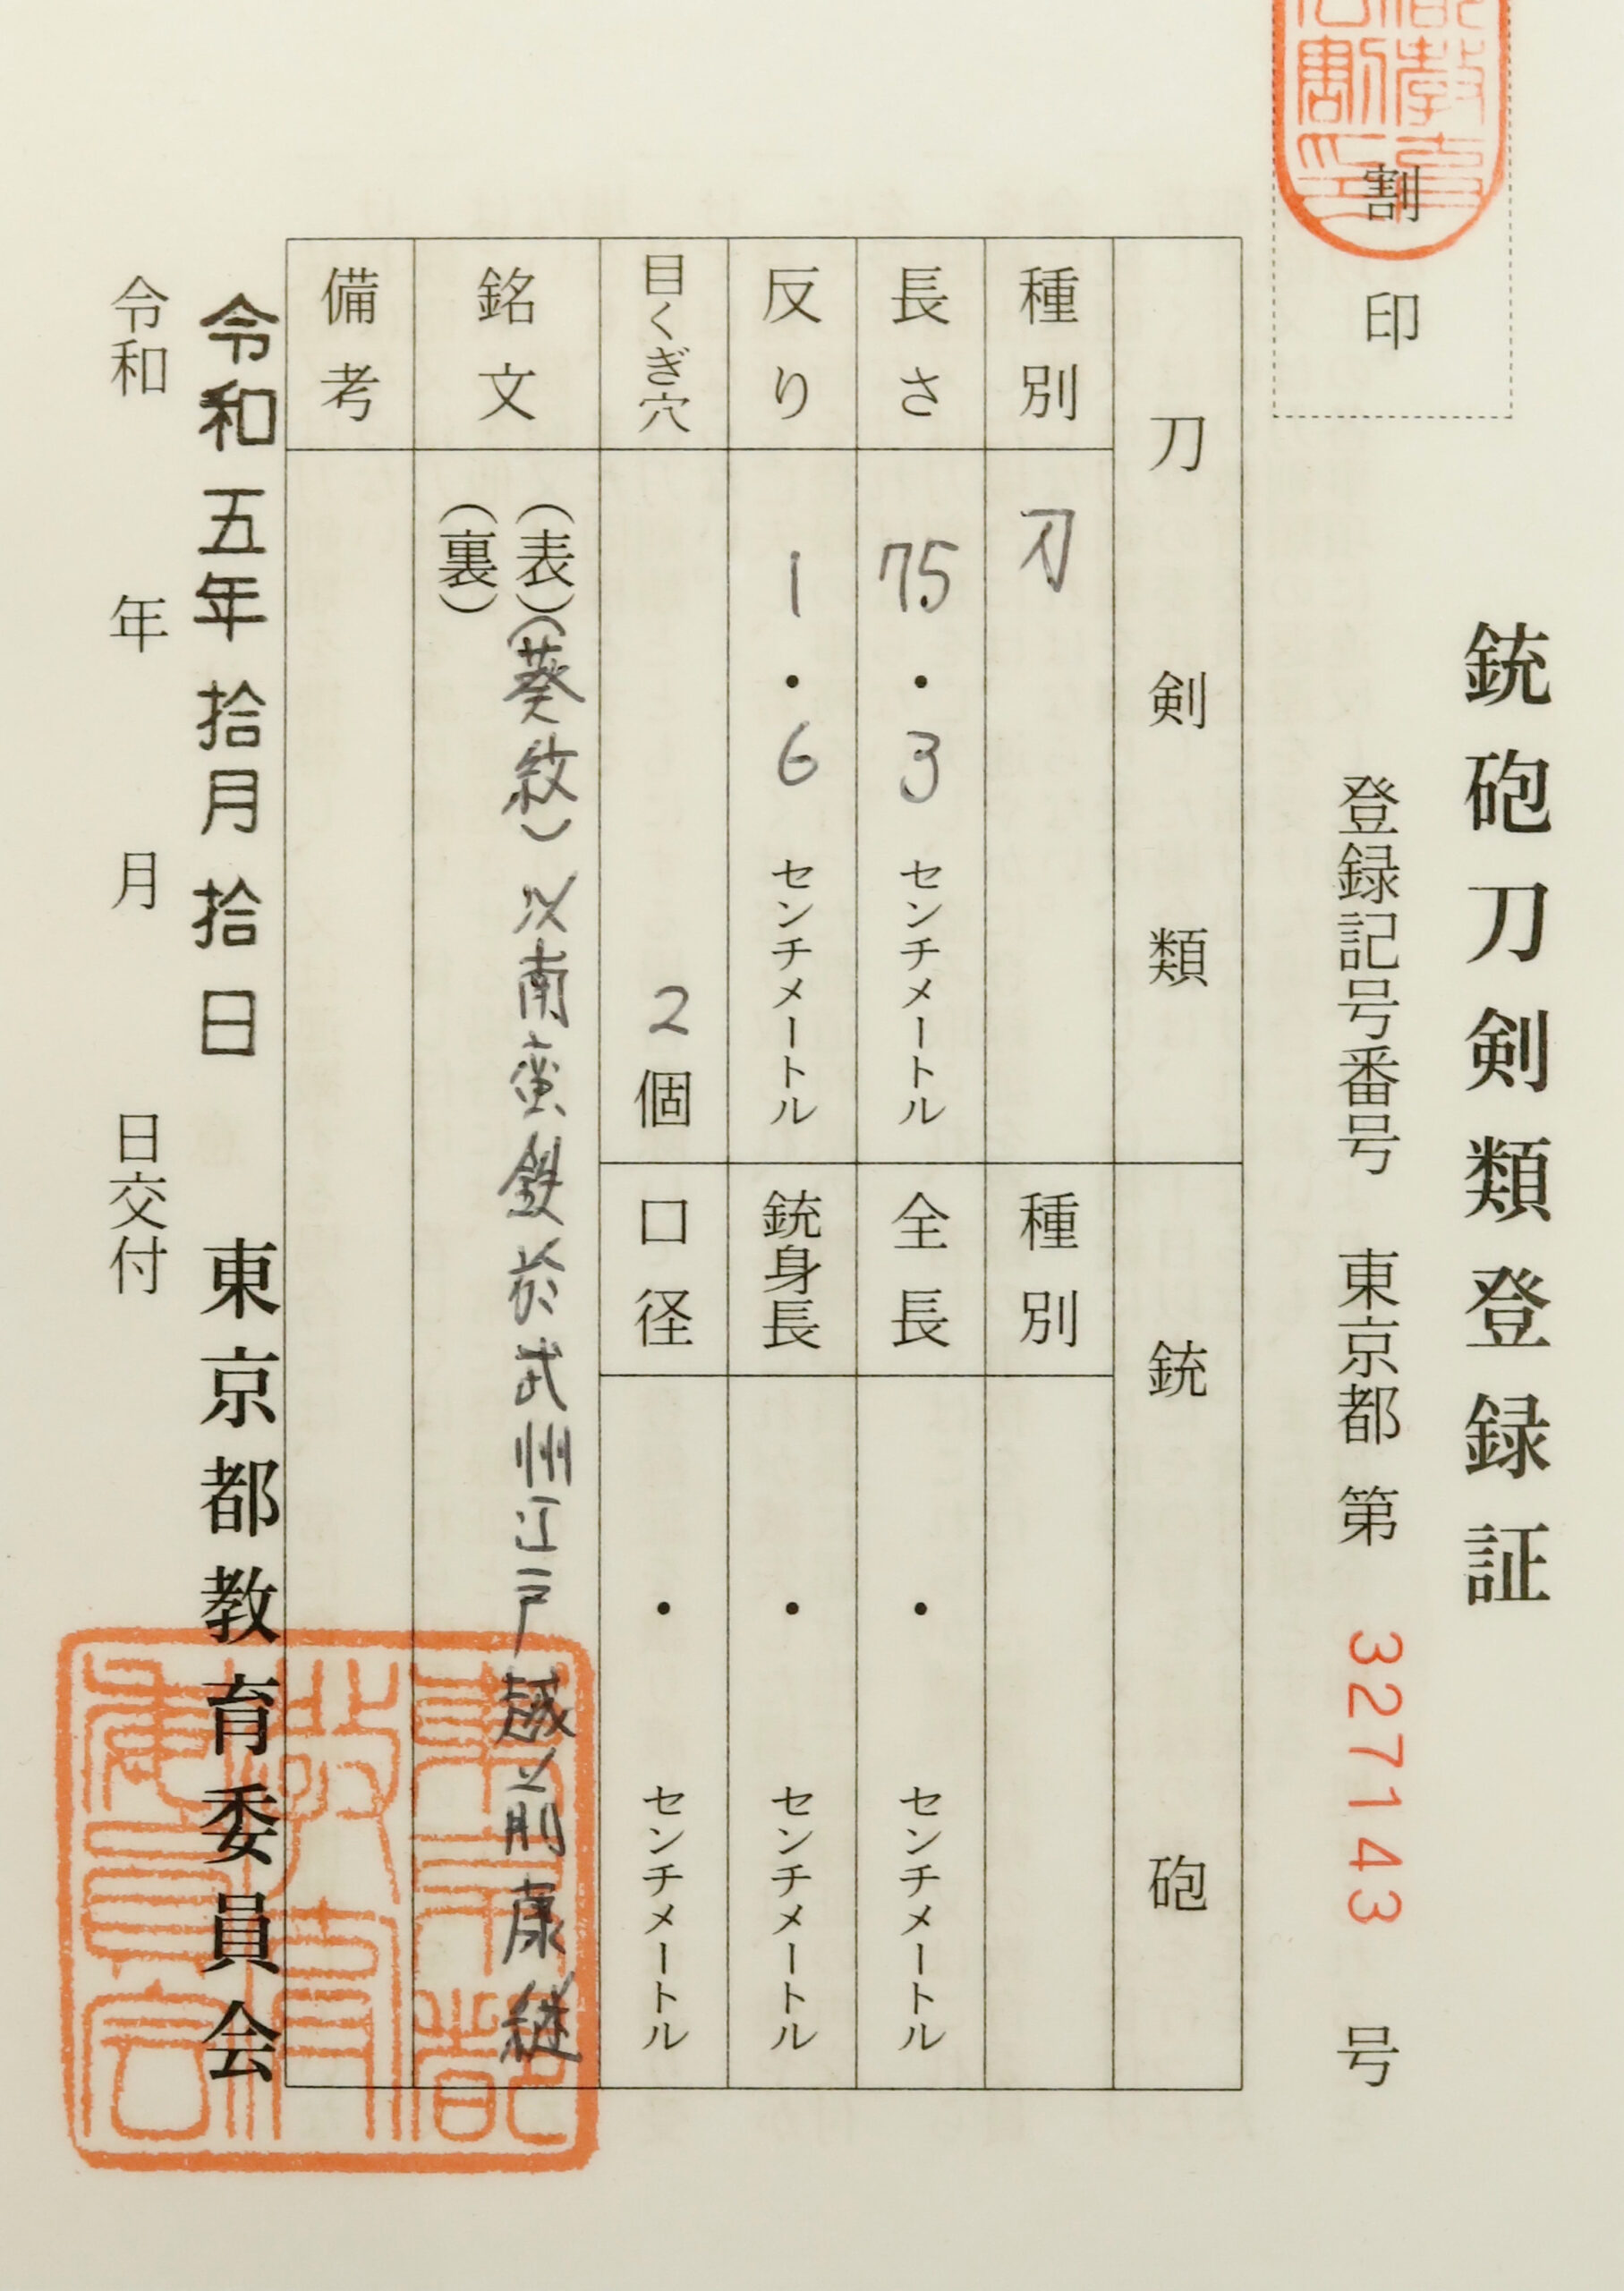 銃砲刀剣類登録証
割印
登録記号番号 東京都 第 327143 号
刀剣類
銃砲
種別 刀
種別
長さ 75・3 センチメートル
全長 ・ センチメートル
反り 1・6 センチメートル
銃身長 ・ センチメートル
目くぎ穴 2個
口径 ・ センチメートル
銘文
(表)(葵紋)以南蛮鉄於武州江戸越前康継
(裏)
備考
令和五年拾月拾日 東京都教育委員会
令和 年 月 日交付